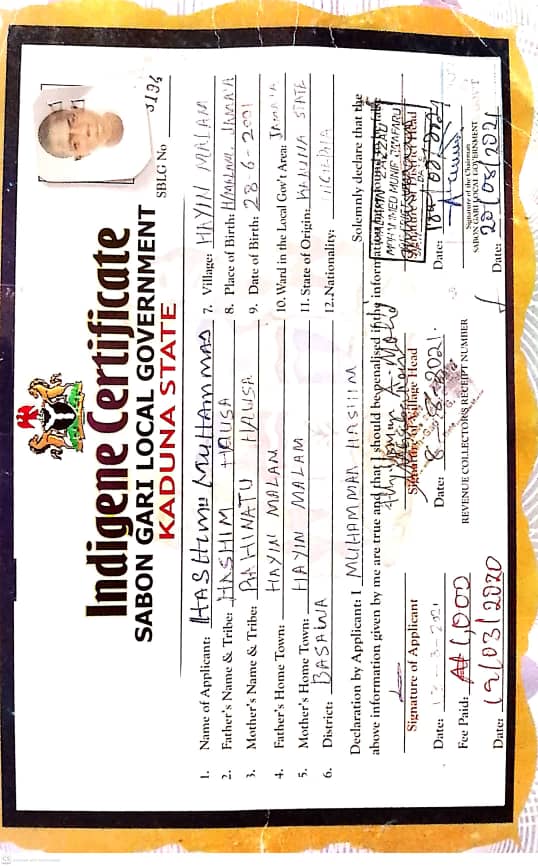 Indigene Certificate
SABON GARI LOCAL GOVERNMENT
KADUNA STATE
SBLG No 5196
1. Name of Applicant: HASHIMU MUHAMMAD
2. Father's Name & Tribe: HASHIM HAUSA
3. Mother's Name & Tribe: HAUSA
4. Father's Home Town: HAYIN MALAM
5. Mother's Home Town: HAYIN MALAM
6. District: BASAWA
7. Village: HAYIN MALAM
8. Place of Birth: H/MALAM, JAMA'A
9. Date of Birth: 28-6-2001
10. Ward in the Local Gov't Area: JAMA'A
11. State of Origin: KADUNA STATE
12. Nationality: NIGERIA
Declaration by Applicant: I MUHAMMAD HASHIM Solemnly declare that the
above information given by me are true and that I should be penalised if the information
Signature of Applicant
Signature of Village Head
Signature of District Head
Date:
Date: 2021.
Date:
Signature of the Chairman
SABON GARI LOCAL GOVERNMENT
Fee Paid: ₦1,000
REVENUE COLLECTORS RECEIPT NUMBER
Date: 19/03/2020
Date: 20/08/2021